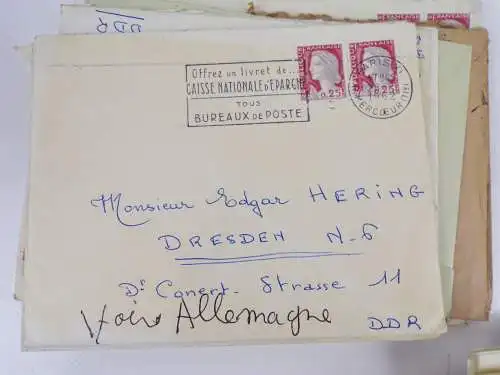 DDR
Offrez un livret de...
CAISSE NATIONALE D'EPARGNE
TOUS
BUREAUX DE POSTE
FRANÇAISE
0,25
PARIS
MERCŒUR (11)
Monsieur Edgar HERING
DRESDEN N-6
Dr Conert-Strasse 11
Allemagne
DDR